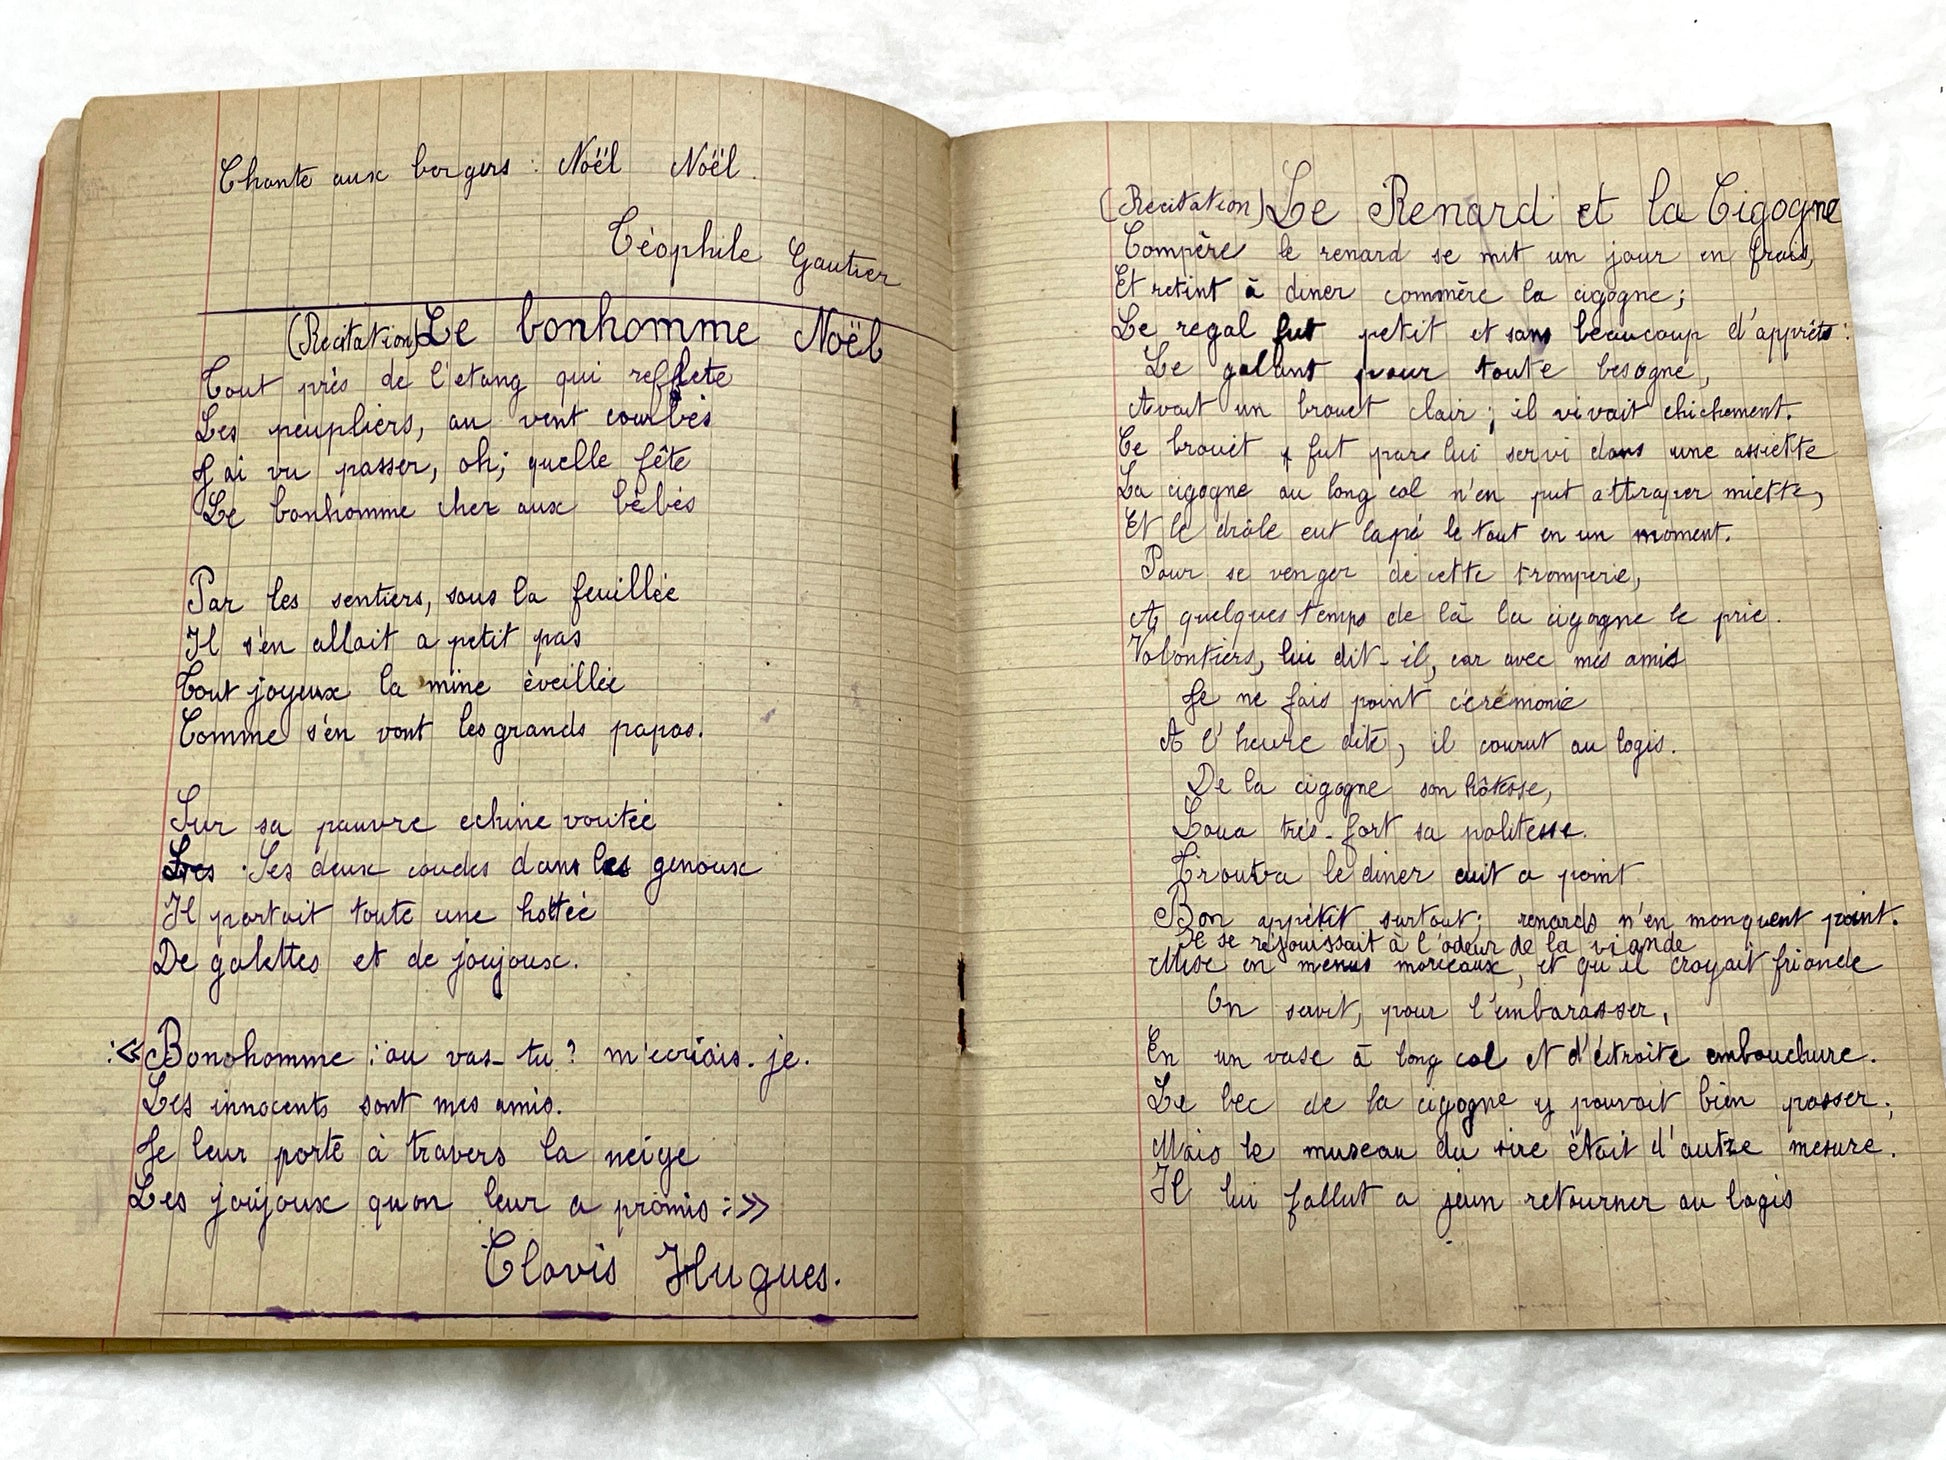 Chante aux bergers : Noël Noël.
Téophile Gautier
(Recitation) Le bonhomme Noël
Tout près de l'etang qui reflète
Les peupliers, au vent courbés
J'ai vu passer, oh; quelle fête
Le bonhomme cher aux bébés
Par les sentiers, sous la feuillée
Il s'en allait a petit pas
Tout joyeux la mine èveillée
Comme s'en vont les grands papas.
Sur sa pauvre echine voutée
Les Ses deux coudes dans les genoux
Il portait toute une hottée
De galettes et de joujoux.
:« Bonohomme : ou vas-tu ? m'ecriais-je.
Les innocents sont mes amis.
Je leur porte à travers la neige
Les joujoux quon leur a promis :»
Clovis Hugues.
(Recitation) Le Renard et la Cigogne
Compère le renard se mit un jour en frais,
Et retint à diner commère la cigogne;
Le regal fut petit et sans beaucoup d'apprêts :
Le galant pour toute besogne,
Avait un brouet clair; il vivait chichement.
Ce brouet fut par lui servi dans une assiette
La cigogne au long col n'en put attraper miette,
Et le drôle eut lapé le tout en un moment.
Pour se venger de cette tromperie,
A quelques temps de là la cigogne le prie.
Volontiers, lui dit-il, car avec mes amis
Je ne fais point cérémonie
A l'heure dite, il courut au logis.
De la cigogne son hôtesse,
Loua trés-fort sa politesse.
Trouva le diner cuit a point
Bon appétit surtout; renards n'en manquent point.
Il se rejouissait à l'odeur de la viande
Mise en menus morceaux, et qu'il croyait friande
On servit, pour l'embarasser,
En un vase à long col et d'étroite embouchure.
Le bec de la cigogne y pouvait bien passer;
Mais le museau du sire était d'autre mesure.
Il lui fallut a jeun retourner au logis